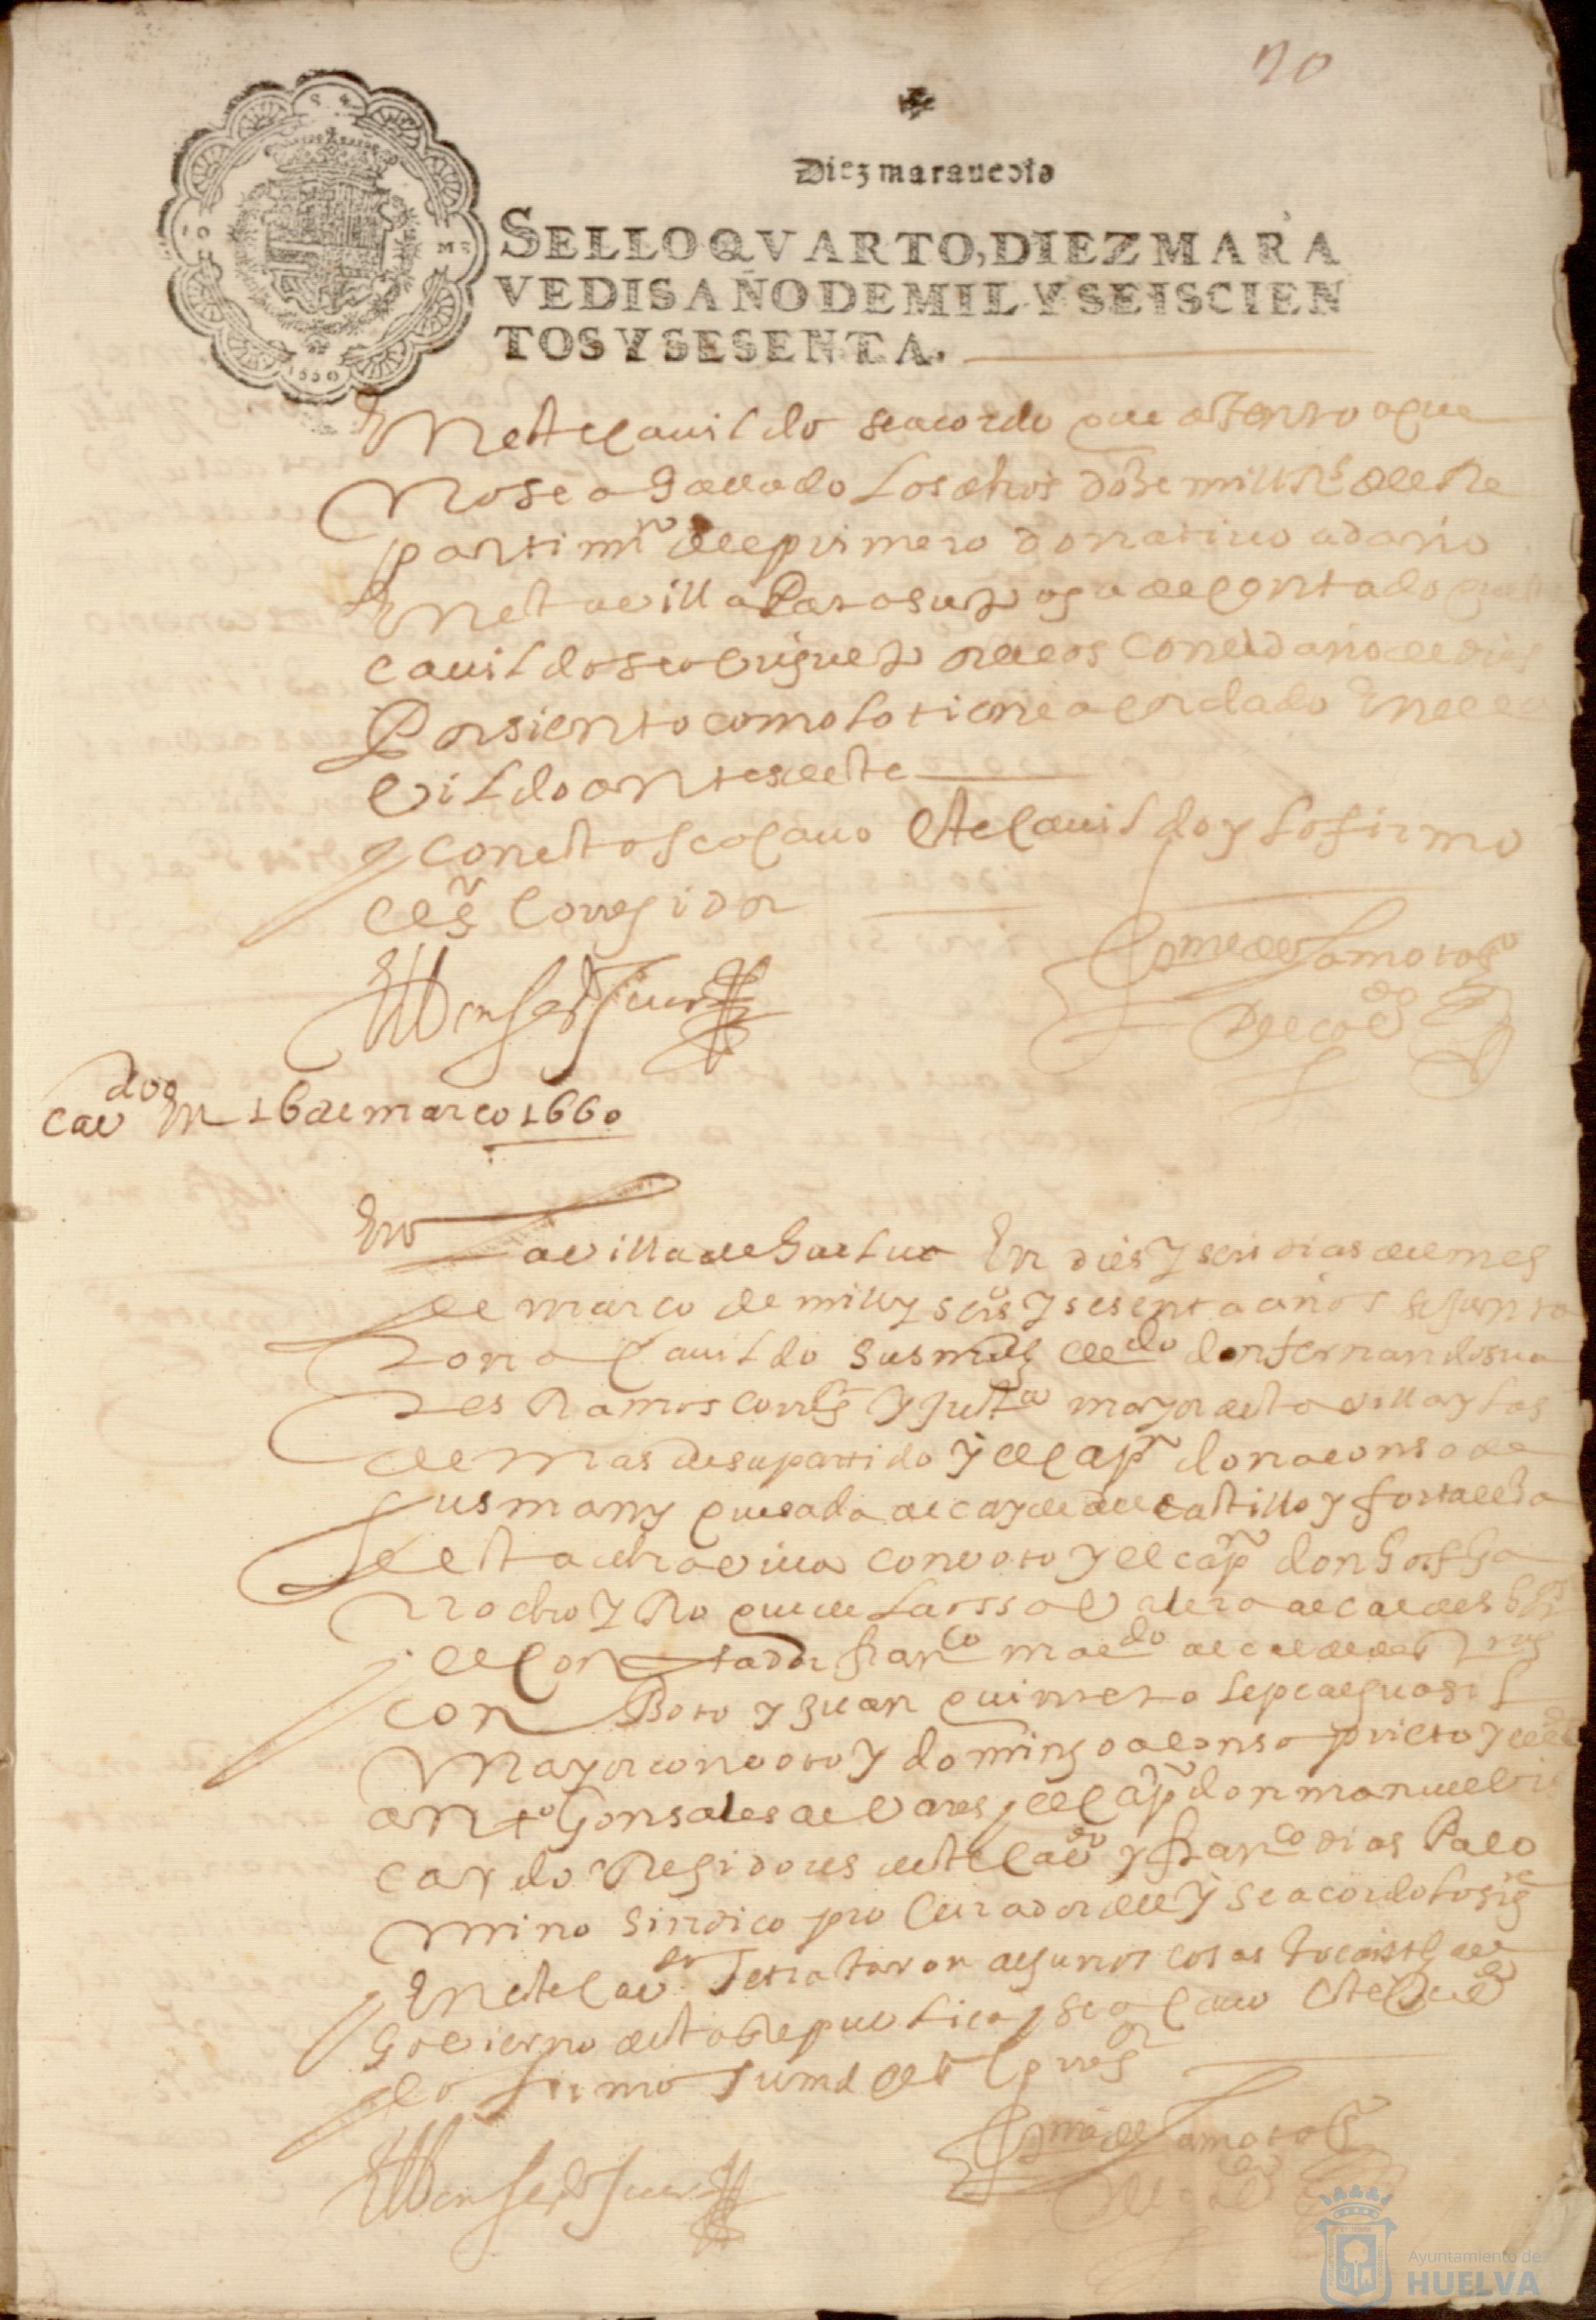 70
Diez maravedis
SELLO QVARTO, DIEZ MARA
VEDIS AÑO DE MIL Y SEISCIEN
TOS Y SESENTA.
S 4
10
MS
1660
En este cauildo se acordo que atento a que
no se a hallado los dhos dose mill Rs del Re
partimo del primero donatiuo a daño
En esta villa Para su paga de contado
cauildo se obligue con el daño de dies
Por siento como lo tiene acordado En el ca
vildo antes deste
y con esto se acauo este cauildo y lo firmo
el sr Corregidor
cavdo En 16 de março 1660
En la villa de Huelua En dies y seis dias del mes
de março de mill y seisos y sesenta años se junta
ron a cauildo sus mds el ldo don fernando sua
res Ramos corregr y justa mayor desta villa y las
demas de su partido y el capn don alonso de
gusman y quesada alcayde del castillo y fortalesa
desta dha villa con voto y el capn don
y el contador franco maldo alcalde
con Voto y juan quintero lepe alguasil
mayor con voto y domingo alonso prieto y el
anto Gonsales de Vares y el capn don manuel
cardo Regidores deste cavdo y franco dias Palo
mino sindico procurador del y se acordo lo sige
En este cavdo se trataron algunos cosas tocantes al
govierno desta Republica y se acauo este cavdo
y lo firmo su md el sr corregr
Ayuntamiento de
HUELVA